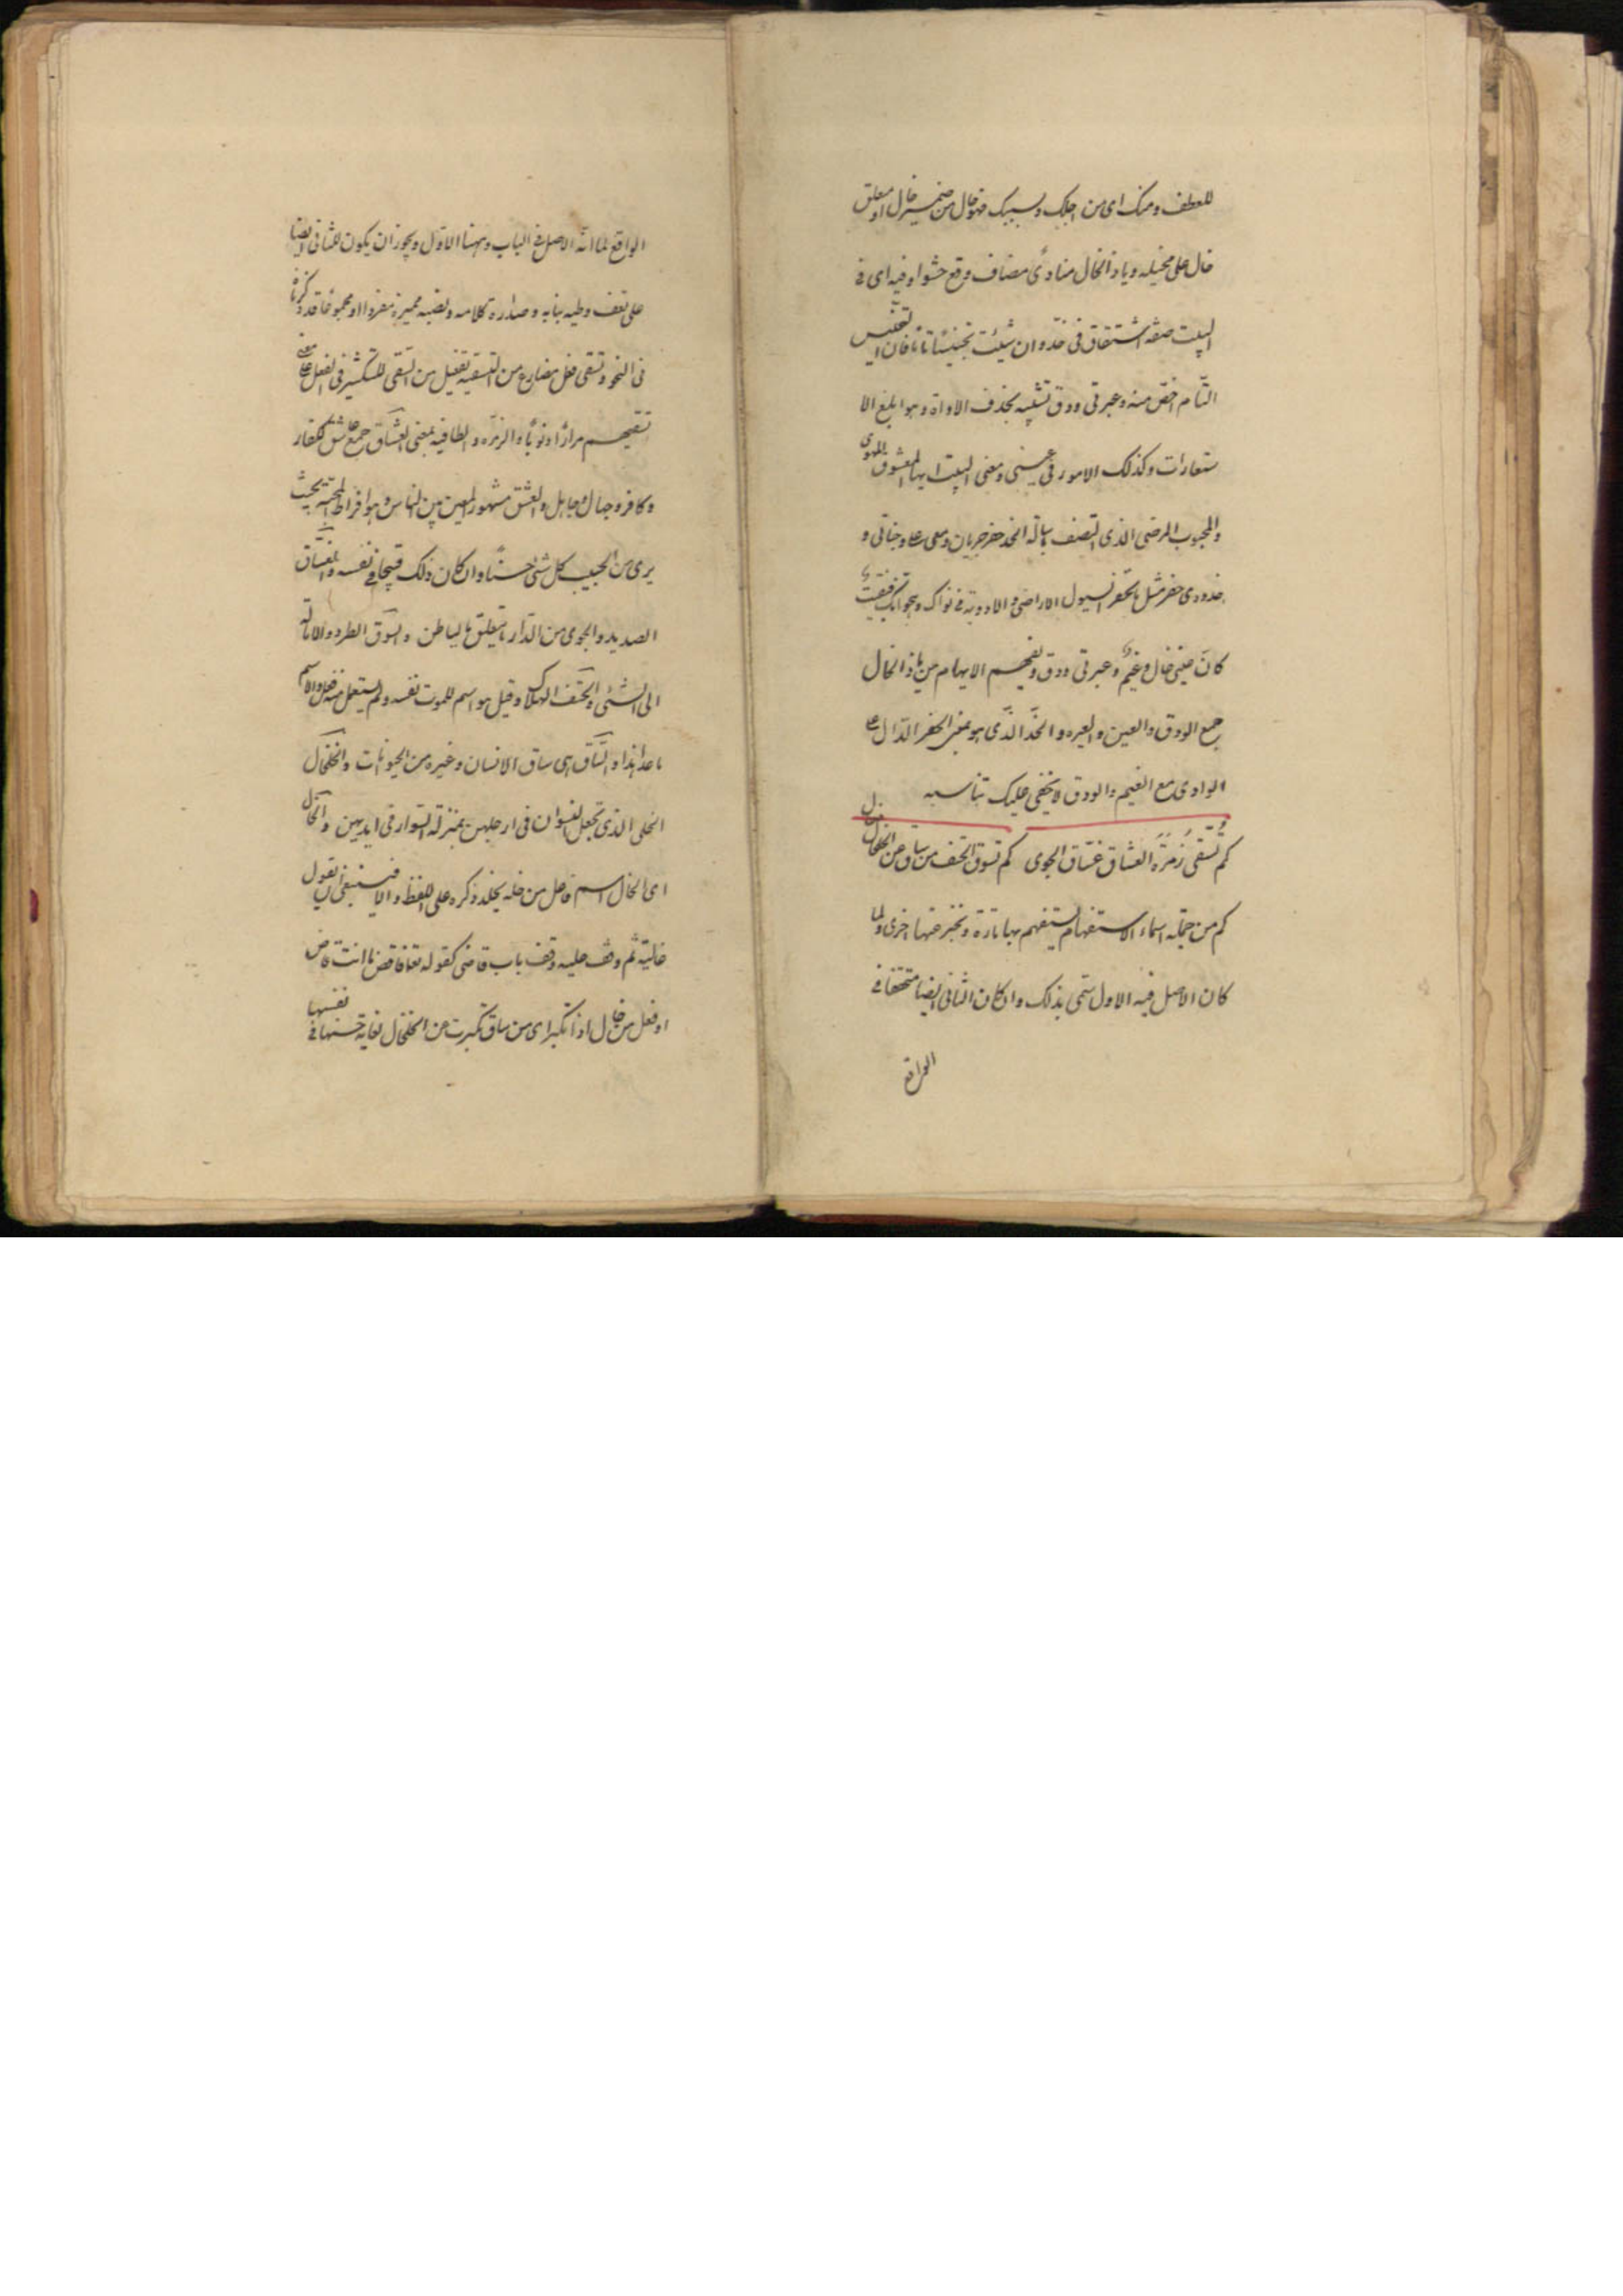 للعطف ومنك اى من اجلك وبسببك فهو حال من ضمير خال او متعلق
خال على مخيله ويا ذا الخال منادى مضاف وقع حشوا وفيه اى فى
البيت صنعة اشتقاق فى خد وان شئت تجنيسا تاما فان التجنيس
التام اخص منه وعبرتى ودق تشبيه بحذف الاداة وهو ابلغ الا
ستعارات وكذلك الامور فى عينى ومعنى البيت ايها المعشوق المهوى
والمحبوب المرضى الذى اتصف بانه الخد حفر جريان دمعى على وجناتى و
خدودى حفر مثل ما تحفر السيول الاراضى والاودية فى نواك وهواك فبقيت
كان عينى خال وغيم وعبرتى ودق ويفهم الايهام من يا ذا الخال
جمع الودق والعين والعبرة والخد الذى هو بمعنى الحفر الدال على
الوادى مع الغيم والودق لا يخفى عليك تناسبه
كم تسقى زمرة العشاق غساق الجوى كم تسوق الحتف من ساق عن الخلخال خال
كم من جملة اسماء الاستفهام يستفهم بها تارة وتخبر عنها اخرى ولما
كان الاصل فيه الاول سمى بذلك وان كان الثانى ايضا متحققا فى
الواقع لما انه الاصل فى الباب وههنا الاول ويجوز ان يكون للثانى ايضا
على تعف وطيه بنابه وصدارة كلامه ونصبه مميزه مفردا او مجموعا قد ذكرناه
فى النحو وتسقى فعل مضارع من التسقية تفعيل من السقى للتكثير فى الفعل على معنى
تسقيهم مرارا ونوبا والزمرة والطائفة بمعنى العشاق جمع عاشق ككفار
وكافر وجهال وجاهل والعشق مشهور المعين بين الناس وهو افراط المحبة بحيث
يرى من الحبيب كل شئ حسنا وان كان ذلك قبيحا فى نفسه والغساق
الصديد والجوى من الدار ما يتعلق بالباطن والسوق الطرد والامالة
الى الشئ والحتف الهلاك وقيل هو اسم للموت نفسه ولم يستعمل منه فعل والاسم
ما عدا هذا والساق هى ساق الانسان وغيره من الحيوانات والخلخال
الحلى الذى تجعل النسوان فى ارجلهن بمنزلة السوار فى ايديهن والخال
اى الخال اسم فاعل من خله يخلد ذكره على اللفظ والا فينبغى ان يقول
خالية ثم وقف عليه وقف باب قاضى كقوله تعا فاقض ما انت قاض
او فعل من خال اذا تكبر اى من ساق تكبرت عن الخلخال لغاية حسنها فى نفسها